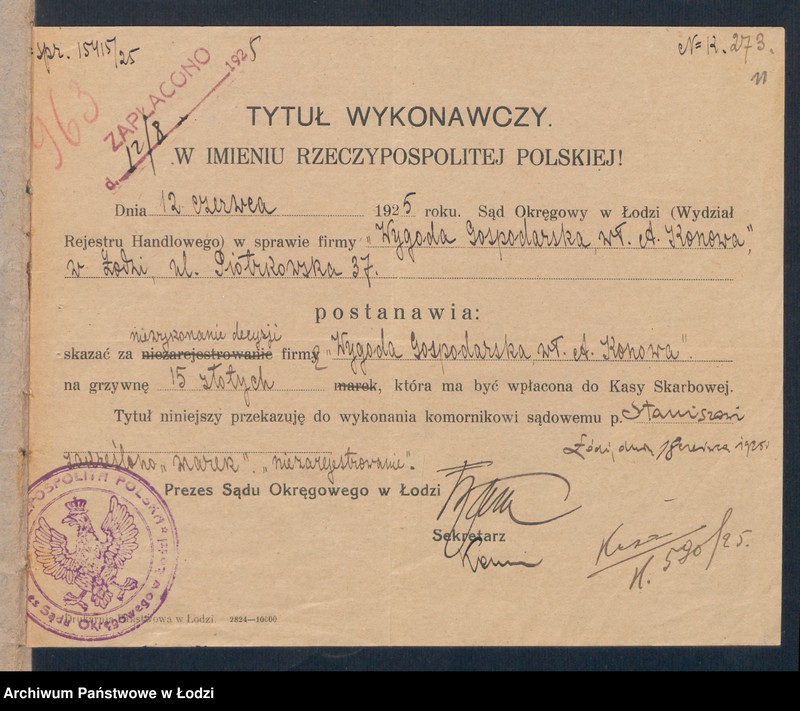 spr. 15415/25
№ R. 273.
11
963
ZAPŁACONO
d. 12/8 1925
TYTUŁ WYKONAWCZY.
W IMIENIU RZECZYPOSPOLITEJ POLSKIEJ!
Dnia 12 czerwca 1925 roku. Sąd Okręgowy w Łodzi (Wydział
Rejestru Handlowego) w sprawie firmy „Wygoda Gospodarska, wł. A. Konowa,"
w Łodzi, ul. Piotrkowska 37.
postanawia:
niewykonanie decyzji
skazać za niezarejestrowanie firmę „Wygoda Gospodarska, wł. A. Konowa".
na grzywnę 15 złotych marek, która ma być wpłacona do Kasy Skarbowej.
Tytuł niniejszy przekazuję do wykonania komornikowi sądowemu p.
Łódź, dnia czerwca 1925
zakreślono „marek". „niezarejestrowanie".
Prezes Sądu Okręgowego w Łodzi
Sekretarz
K. 590/25.
Drukarnia Państwowa w Łodzi. 2824—10000
Archiwum Państwowe w Łodzi